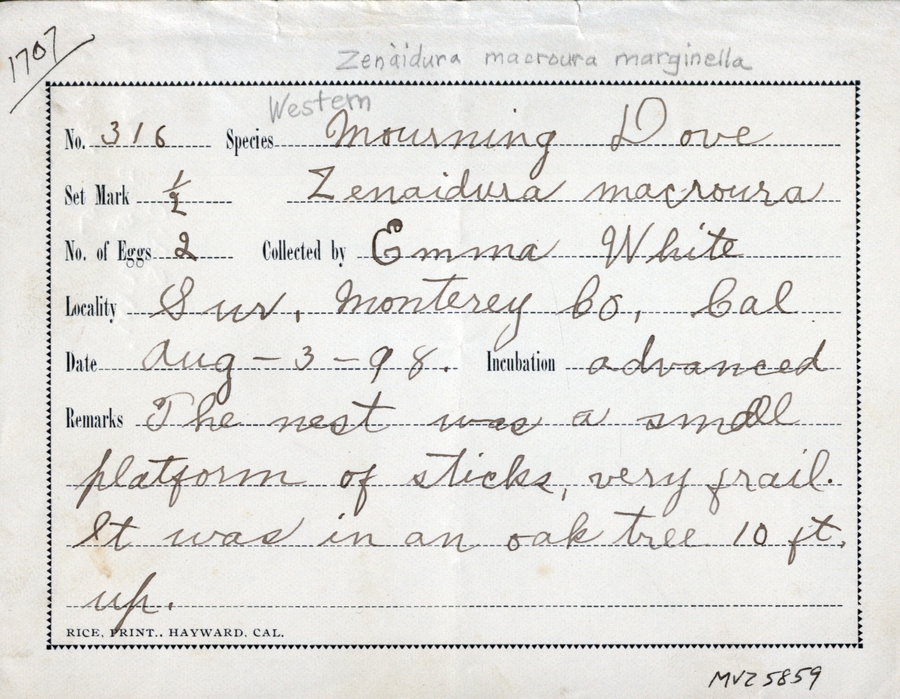 1707
Zenaidura macroura marginella
Western
No. 316 Species Mourning Dove
Set Mark 1/2 Zenaidura macroura
No. of Eggs 2 Collected by Emma White
Locality Sur, Monterey Co, Cal
Date Aug-3-98. Incubation advanced
Remarks The nest was a small
platform of sticks, very frail.
It was in an oak tree 10 ft.
up.
RICE, PRINT., HAYWARD, CAL.
MVZ 5859